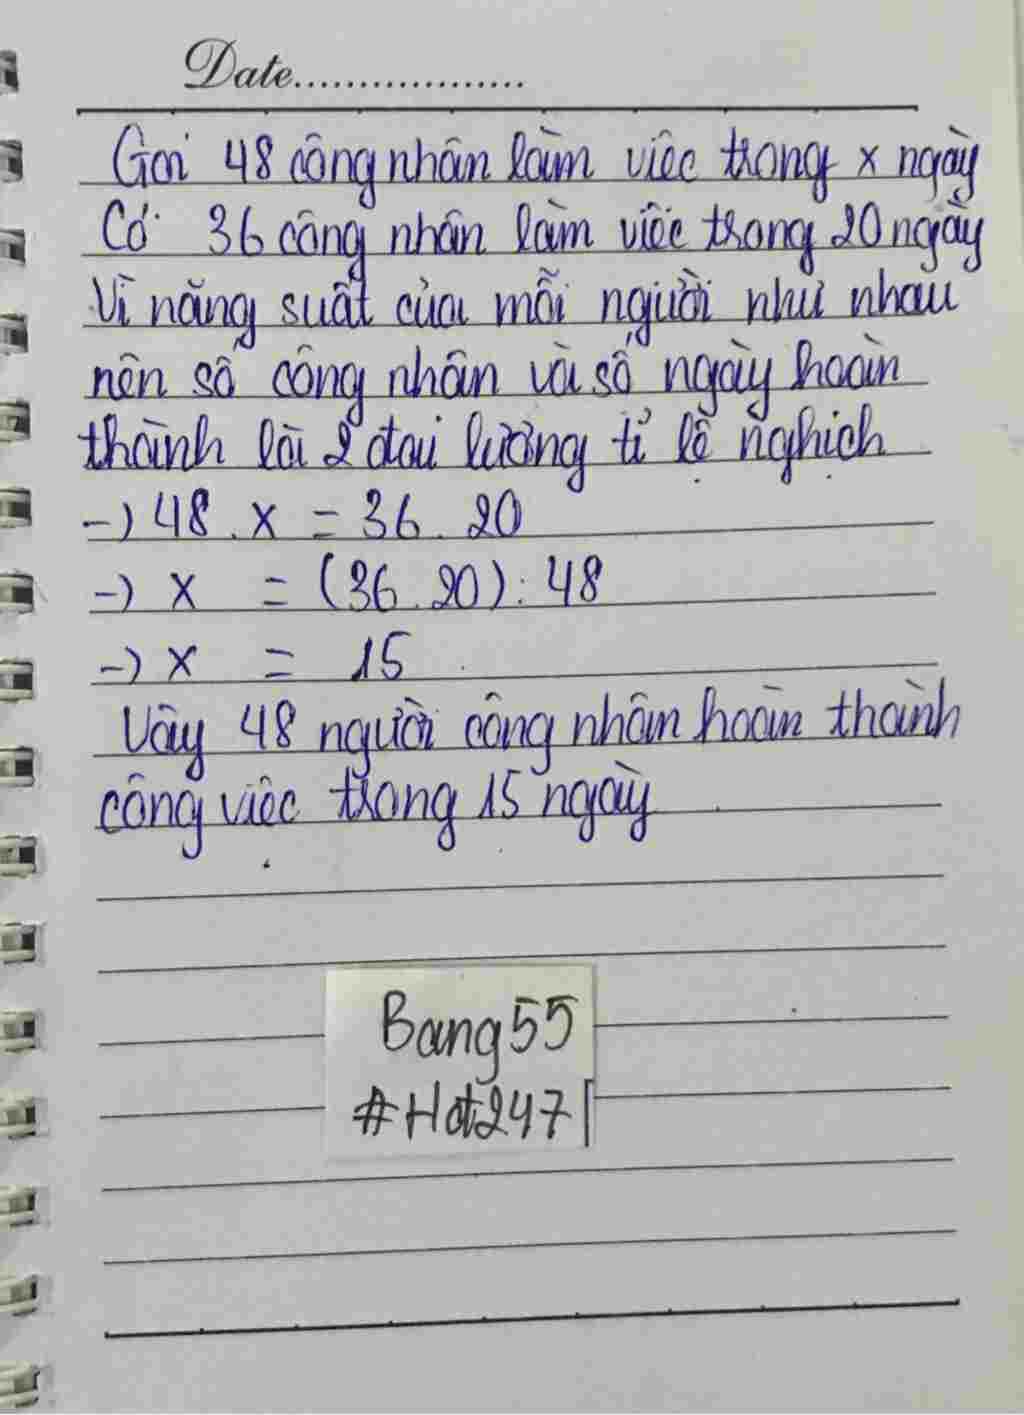 Date..................
Gọi 48 công nhân làm việc trong x ngày
Có 36 công nhân làm việc trong 20 ngày
Vì năng suất của mỗi người như nhau
nên số công nhân và số ngày hoàn
thành là 2 đại lượng tỉ lệ nghịch
-) 48 . x = 36 . 20
-) x = (36 . 20) : 48
-) x = 15
Vậy 48 người công nhân hoàn thành
công việc trong 15 ngày
Bang55
#Hot247|